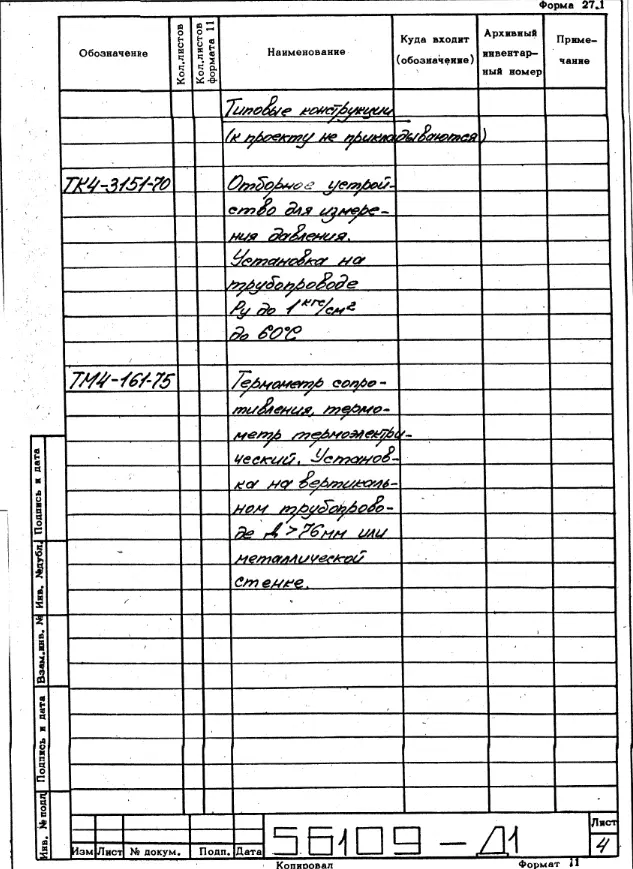 Форма 27.1
Обозначение
Кол.листов
Кол.листов формата 11
Наименование
Куда входит (обозначение)
Архивный инвентарный номер
Примечание
Типовые конструкции
(к проекту не прикладываются)
ТК4-3151-70 Отборное устрой-
ство для измере-
ния давления.
Установка на
трубопроводе
Ру до 1 кгс/см2
до 60°С
ТМ4-161-75 Термометр сопро-
тивления, термо-
метр термоэлектри-
ческий. Установ-
ка на вертикаль-
ном трубопрово-
де Д>76мм или
металлической
стенке.
Подпись и дата
Инв. №дубл.
Взам.инв. №
Подпись и дата
Инв. №подл
Изм Лист № докум. Подп. Дата
56109-Д1
Лист
4
Копировал Формат 11